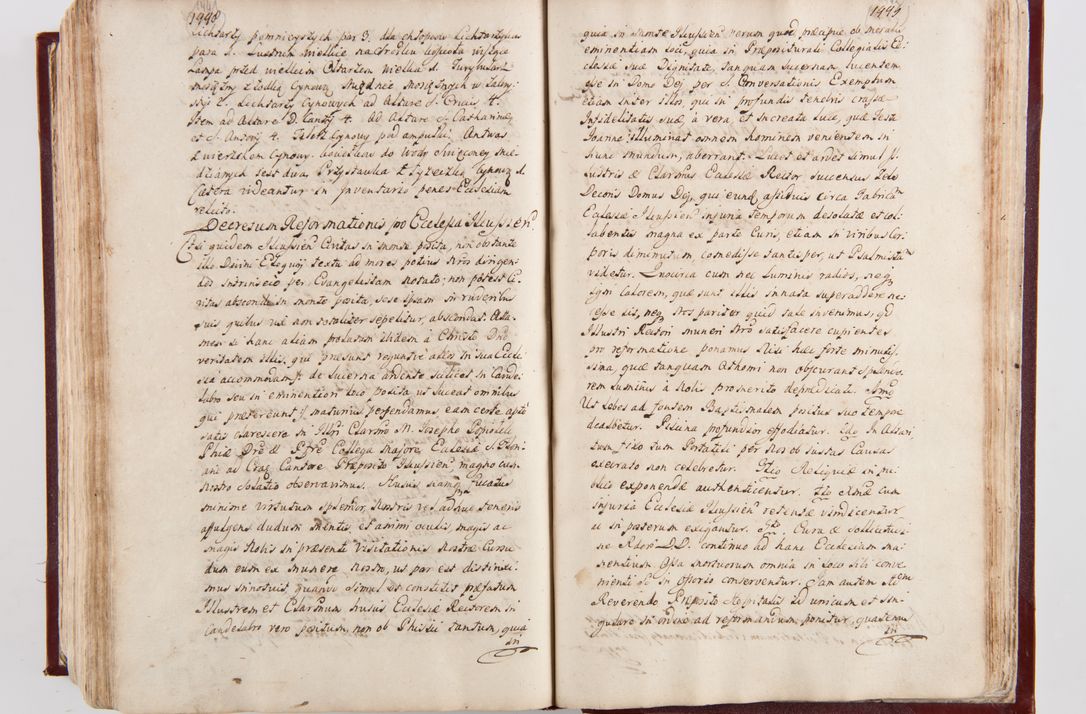 1448
Lichtarzy pomnieyszych par 3. dla chłopcow Lichtarzyków
para 1. Lustrik wielkie na srodku kościoła wiszące
Lampa przed wielkim Ołtarzem wielka 1. Turybularz
mosiężny z Łodką Cynową, Miednic mosiężnych w Zakry-
styi 2. Lichtarzy Cynowych ad Altare S. Crucis 4.
Item ad Altare D. Cantÿ 4. Ad Altare S. Catharinæ
et S. Antonij 4. Talerz Cynowy pod ampułki. Antwas
z wierzchem Cynowy. Kociełków do Wody Święconey mie-
dzianych iest dwa, Przystawka z Łyżeczką Cynową 1.
Cætera videantur in Inventario penes Ecclesiam
relicto.
Decretum Reformationis pro Ecclesia Ilkussien:
Si quidem Ilkussien Civitas in monte posita, non obstante
illo Divini Eloquij textu ad mores potius nros dirigen-
dos intrinsece per Evangelistam notato: non potest Ci-
vitas abscondi in monte posita, sese ipsam in ruderibus
suis quibus vix non totaliter sepelitur, abscondat. Atta-
men si hanc aliam prolatam itidem à Christo Dno
veritatem illis, qui præsunt reguntve alios in sua Eccle-
sia accommodam de lucerna ardente scilicet in Cande-
labro seu in eminentiori loco posita, ut luceat omnibus
qui prætereunt maturius perpendamus, eam certe apte
satis clarescere in Illri Clarsmo M. Josepho Popiołek
Phiæ Dre et Pfre Collega Majore, Ecclesiæ S. Flori-
ani ad Crac: Cantore Præposito Ilkussien magno cum
nostro solatio observavimus. Hujus siquidem vicatus
minime virtutum splendor, nostris vel adhuc teneris
affulgens dudum mentis et animi oculis, magis ac
magis Nobis in præsenti Visitationis Nostræ Cursu
dum eum ex munere nostro, ut par est distinxi-
mus innotuit quando simul et constitit præfatum
Illustrem et Clarsmum hujus Ecclesiæ Rectorem in
Candelabro vero positum, non ob Phisii tantum, quia
in
1449
quia in monte Ilkussien verum quod præcipue ob moralis
eminentiam loci, quia in Præpositurali Collegialis Ec-
clesiæ suæ Dignitate, tanquam Lucernam, lucentem
esse in Domo Dej per S. Conversationis Exemplum
etiam inter illos, qui in profundis tenebris crassæ
Infidelitatis suæ, à vera, et Increata Luce, quæ Teste
Joanne: illuminat omnem hominem venientem in
hunc mundum, aberrant. Lucet et ardet simul Il-
lustris et Clarsmus Ecclesiæ Rector succensus Zelo
Decoris Domus Dej, qui eund assiduis circa Fabricam
Ecclesiæ Ilkussien injuria temporum desolatæ et col-
labentis magna ex parte Curis, etiam in viribus Cor-
poris diminutum, comedisse tantisper, ut Psalmistam
videtur. Idcirco cum nec Luminis radios, neq
Igni Calorem, quæ sunt illis innata superaddere ne-
cesse sit, neq nos pariter quid tale invenimus, qd
Illustri Rectori muneri nro satisfacere cupientes
pro reformatione ponamus nisi hæc forte minutis-
sima, quæ tanquam Athomi non obscurant splendo-
rem luminis à Nobis pro merito deprædicati. Imo
Ut lebes ad fontem Baptismalem positus suo tempore
dealbetur. Piscina profundior effodiatur. 2do In Altari
tum fixo tum Portatili per nos ob justas Causas
execrato non celebretur. 3tio Reliquiæ in pu-
blico exponendæ authenticentur. 4to Ornæ cum
injuria Ecclesiæ Ilkussien retentæ vindicentur
ac in posterum exigantur. 5to Cura et sollicitudi-
ne Rdorum DD. continuo ad hanc Ecclesiam ma-
nentium Ossa mortuorum omnia in loco sibi conve-
nienti et in Ossorio conserventur. Jam autem Item
Reverendo Præposito Hospitalis id unicum et sin-
gulare in ordine ad reformandum ponitur, quatenus
in